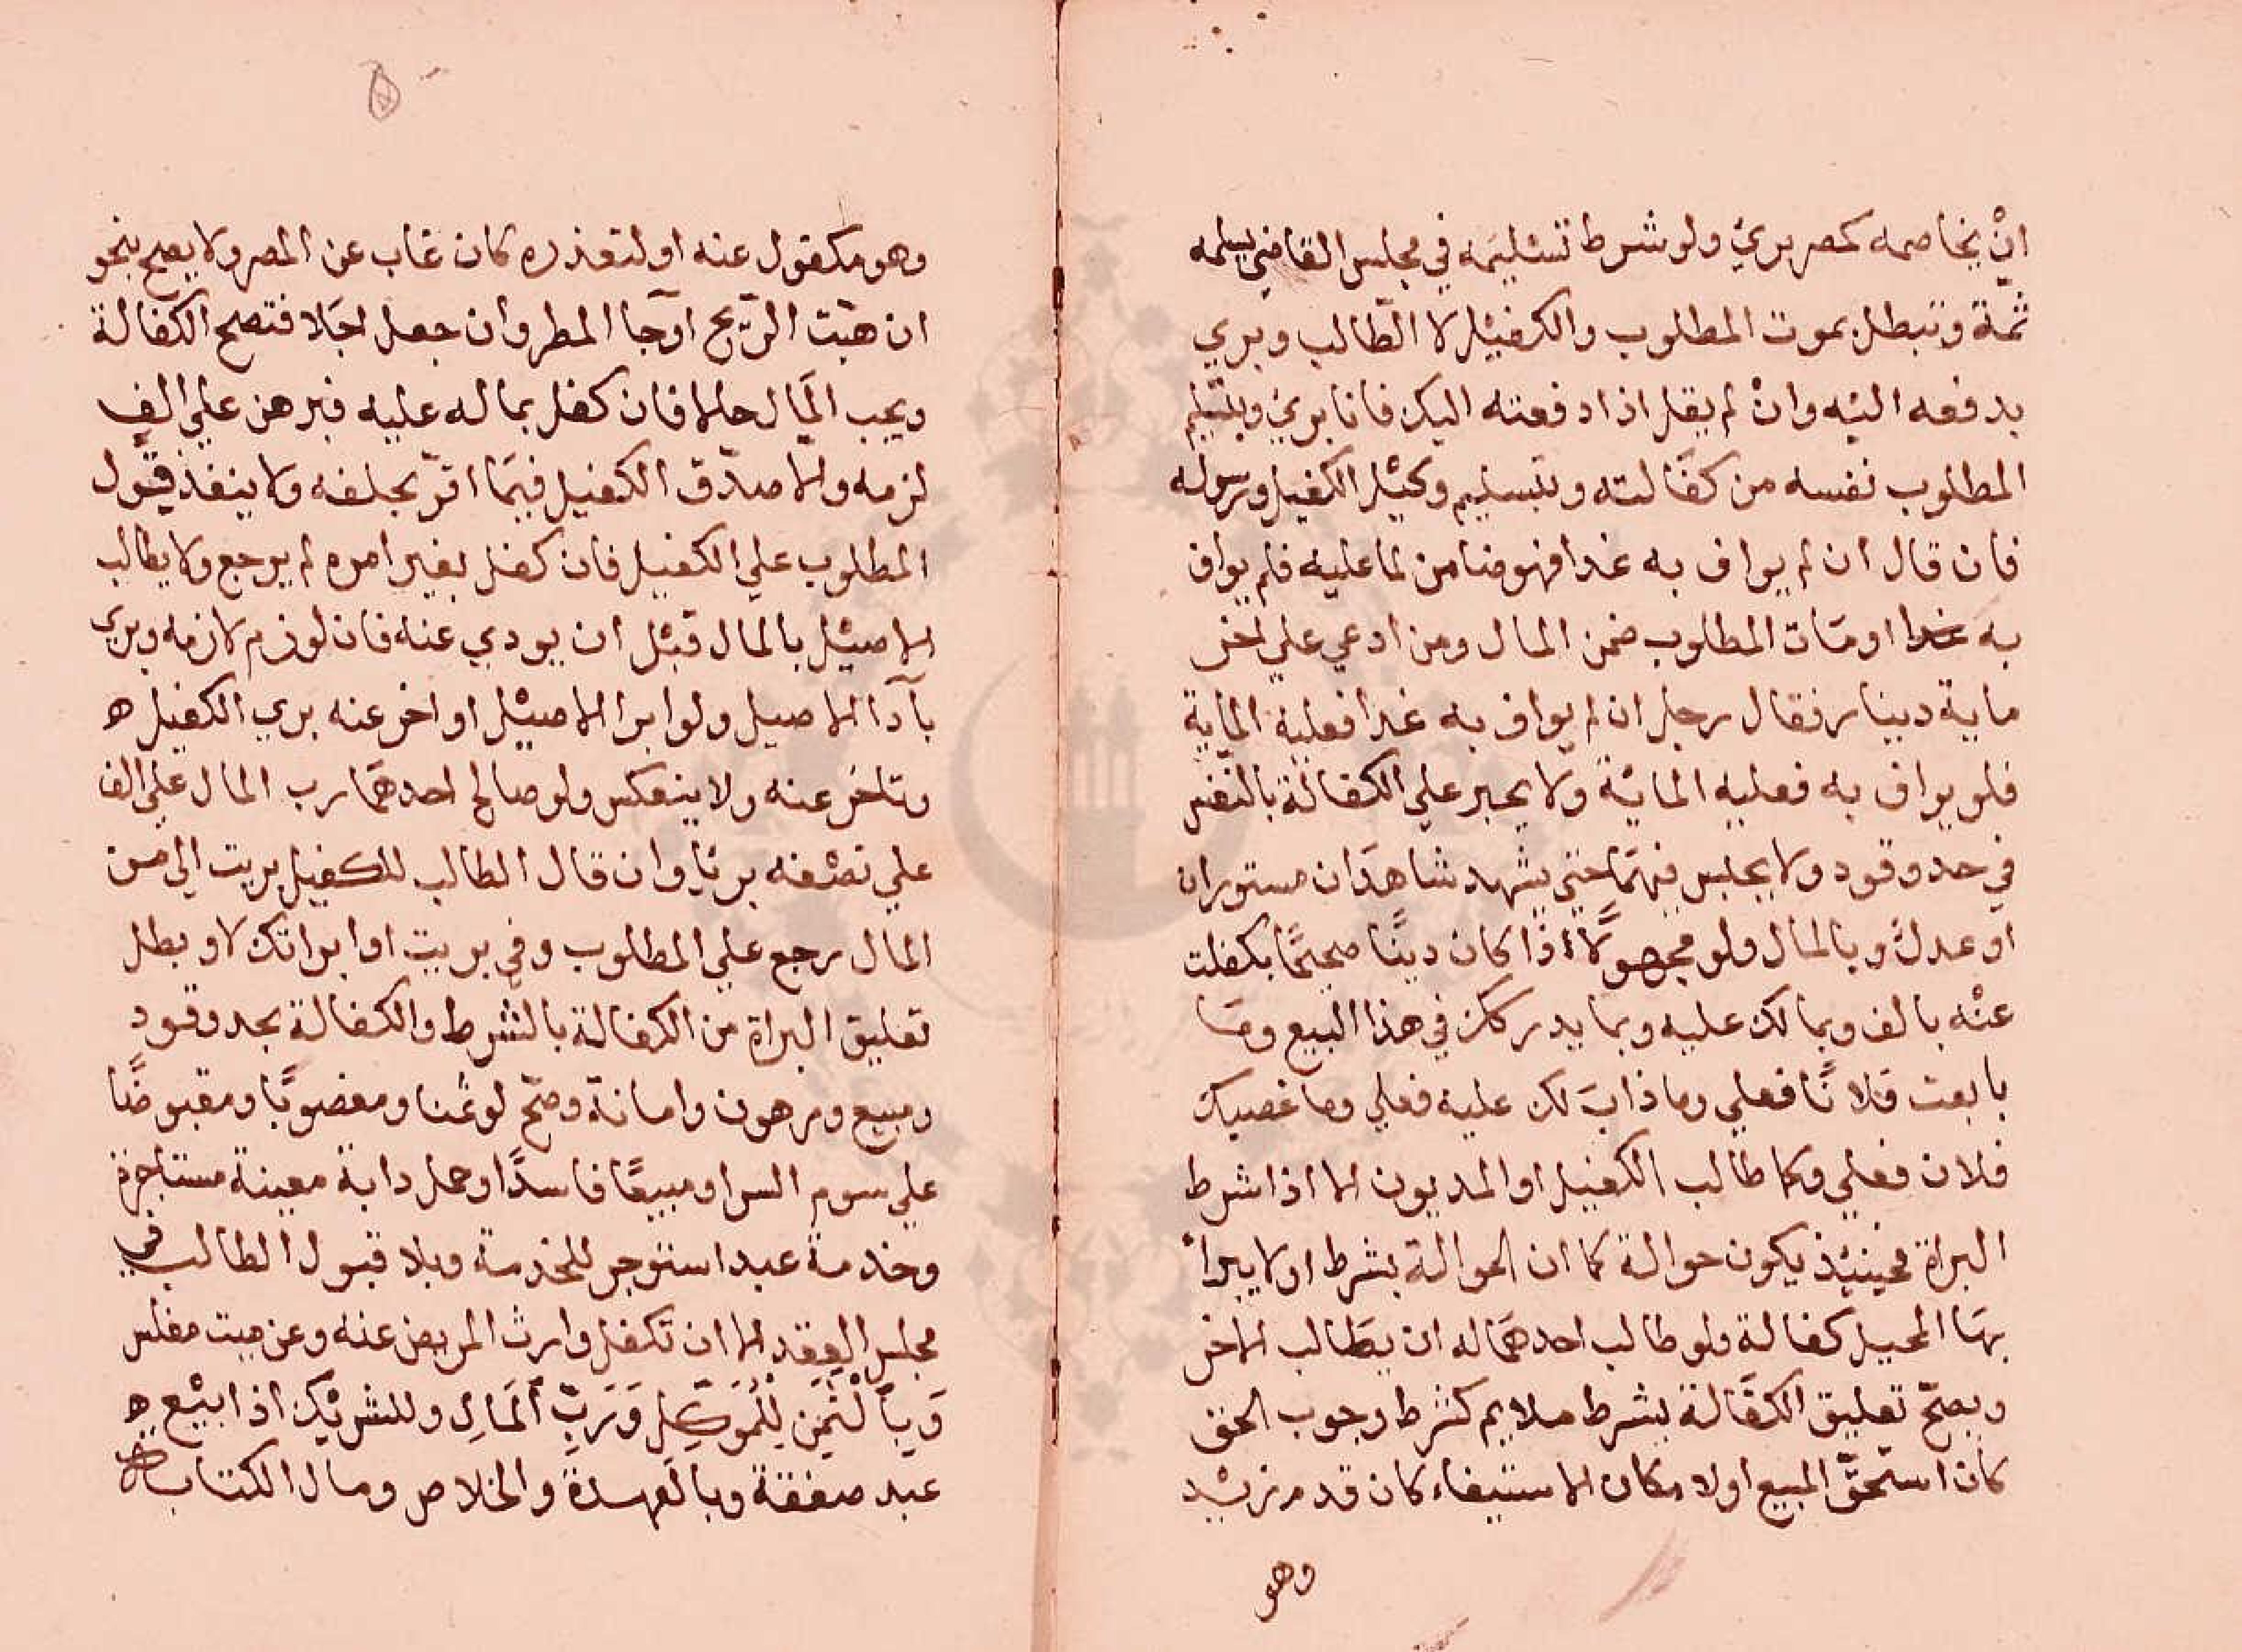 انْ يخاصمه كمصر بريَ ولو شرط تسْليمَه في مجلس القاضي يسلمه
ثمّة وتبطل بموت المطلوب والكفيْل لا الطّالب وبري
بدفعه اليْه وانْ لم يقل اذا دفعته اليك فانا بريَ وبتسْليم
المطلوب نفسه من كفَالته وبتسليم وكيْل الكفيل ورسوله
فان قال ان لم يواف به غدا فهو ضامن لما عليه فلم يواف
به غدا او مَات المطلوب ضمن المال ومن ادعي علي اخر
ماية دينار فقال رجل ان لم يواف به غدا فعليه المَاية
فلو يواف به فعليه المايَة ولا يجبر علي الكفالة بالنفس
في حد وقود ولا يحبس فيهمَا حتي يشهد شاهدَان مستوران
اَو عدلً وبالمال ولو مجهولًا اذَا كان ديْنًا صحيحًا بكفلت
عنْه بالف وبما لك عليه وبما يدركك في هذا البيع ومَا
بايعت فلانًا فعلي وما ذابَ لك عليه فعلي وما غصبك
فلان فعلي وكما طالب الكفيل او المديون الا اذا شرط
البراة فحينيْذ يكون حوالة كما ان الحوالة بشرط او لا يبرا
بهَا المحيل كفالة ولو طالب احدهمَا له ان يطَالب الاخر
ويصحّ تعليق الكفَالة بشرط ملايم كشرط وجوب الحق
كان استحقّ المبيع او لا مكان الاستيفاء كان قدم زيْد
وهو
وهو مكفول عنه او لتعذره كان غاب عن المصر ولا يصح بنحو
ان هبّت الرّيح اَو جَا المطر وان جعل اجَلا فتصح الكفالة
ويجب المَال حالا فان كفل بماله عليه فبرهن علي الف
لزمه والا صدّق الكفيل فيمَا اقرّ بحلفه ولا ينفذ قَول
المطلوب علي الكفيل فان كفل بغير امره لم يرجع ولا يطالب
الاصيْل بالمال قبْل ان يودي عنه فان لوزم لازمه وبري
بآدا الاصيل ولو ابرا الاصيْل او اخر عنه بري الكفيل ه
وتاخر عنه ولا ينعكس ولو صالح احدهمَا رب المال علي الف
علي نصْفه بريَا وان قال الطالب للكفيل بريت الي من
المال رجع علي المطلوب وفي بريت او ابراتك لا وبطل
تعليق البراة من الكفالة بالشرط والكفالة بحد وقود
ومبيع ومرهون وامانة وصَحّ لو ثمنا ومغصوبًا ومقبوضًا
علي سوم السرا ومبيعًا فاسدًا وحمل دابة معينة مستاجرة
وخدمة عبد استوجر للخدمة وبلا قبول الطالب في
مجلس العقد الا ان تكفل وارث المريض عنه وعن ميت مفلس
وَبِالْثَمَنِ لِلْمُوَكِّلِ وَرَبّ اَلمَالِ وللشريْك اذا بيْع ه
عبد صفقة وبالعهدة والخلاص ومال الكتابة